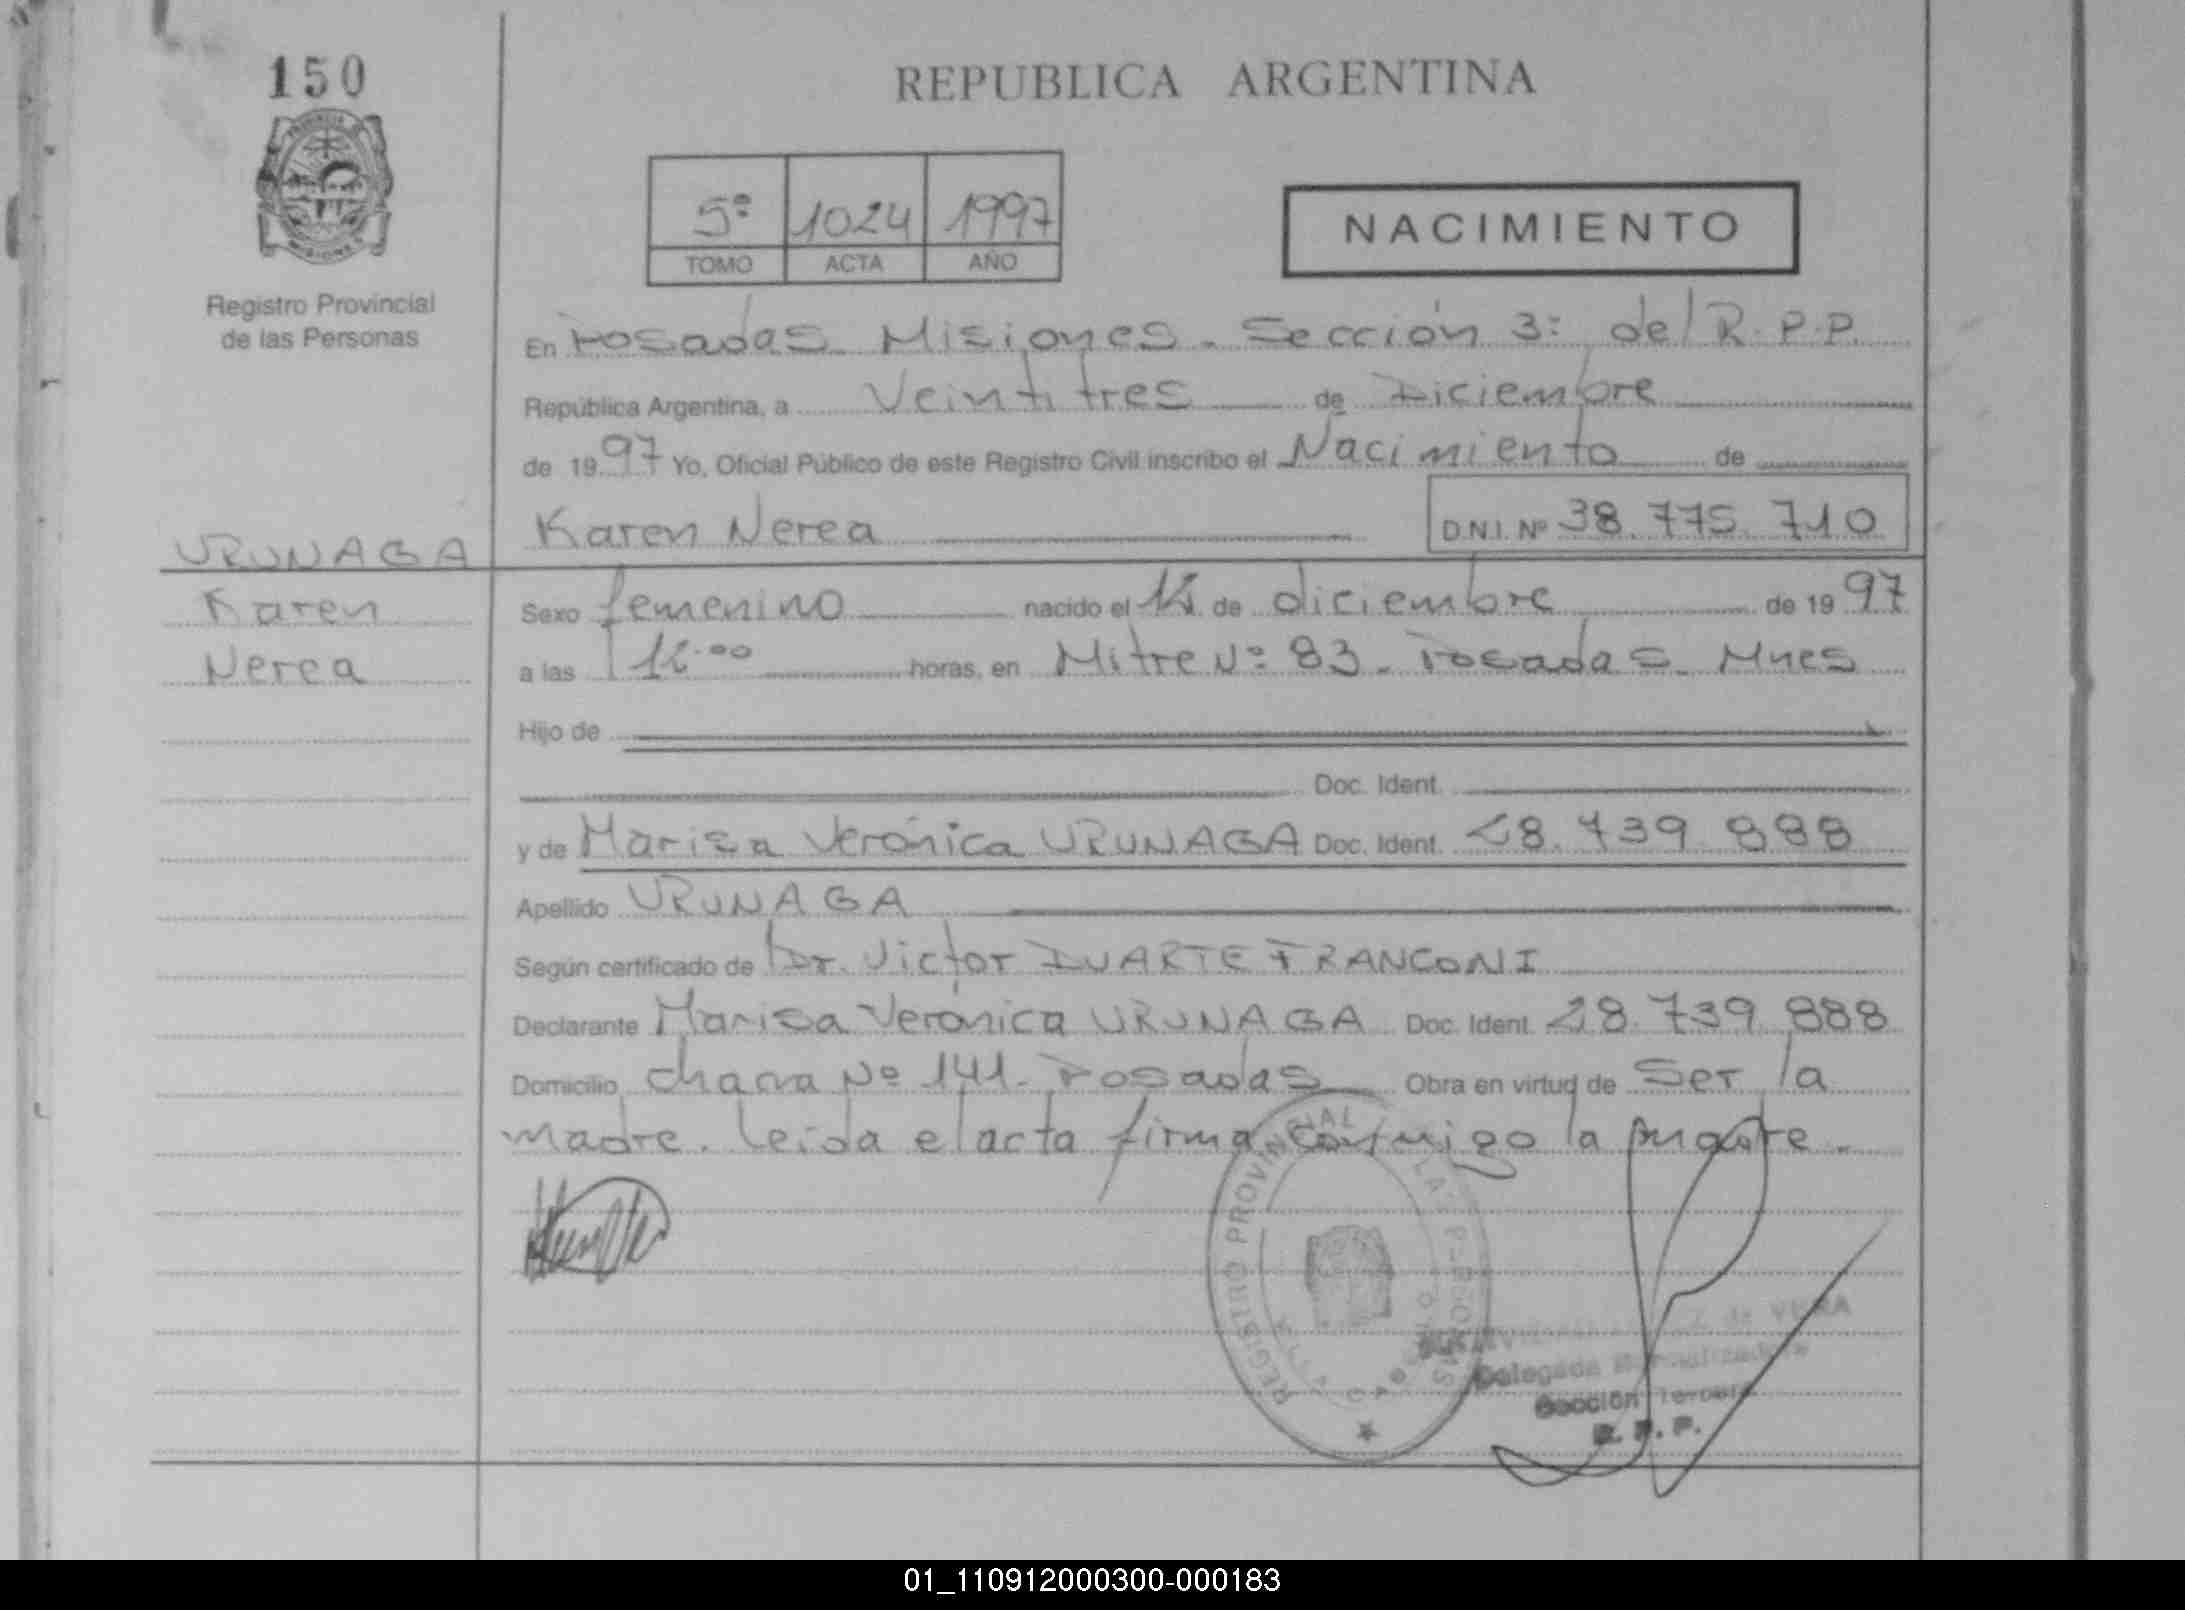 150
REPUBLICA ARGENTINA
5º 1024 1997
TOMO ACTA AÑO
NACIMIENTO
Registro Provincial
de las Personas
En Posadas Misiones. Sección 3º del R.P.P.
República Argentina, a Veintitres de Diciembre
de 1997 Yo, Oficial Público de este Registro Civil inscribo el Nacimiento de
Karen Nerea D.N.I. Nº 38.775.710
URUNAGA
Karen
Nerea
Sexo femenino nacido el de diciembre de 1997
a las horas, en Mitre Nº 83. Posadas. Mnes
Hijo de
Doc. Ident.
y de Marisa Verónica URUNAGA Doc. Ident. 28.739.888
Apellido URUNAGA
Según certificado de Dr. Victor DUARTE FRANCONI
Declarante Marisa Verónica URUNAGA Doc. Ident. 28.739.888
Domicilio chacra Nº 141. Posadas Obra en virtud de Ser la
madre. leida el acta firma conmigo la madre.
REGISTRO PROVINCIAL LAS
de VERA
Delegada
Sección Tercera
R.P.P.
01_110912000300-000183